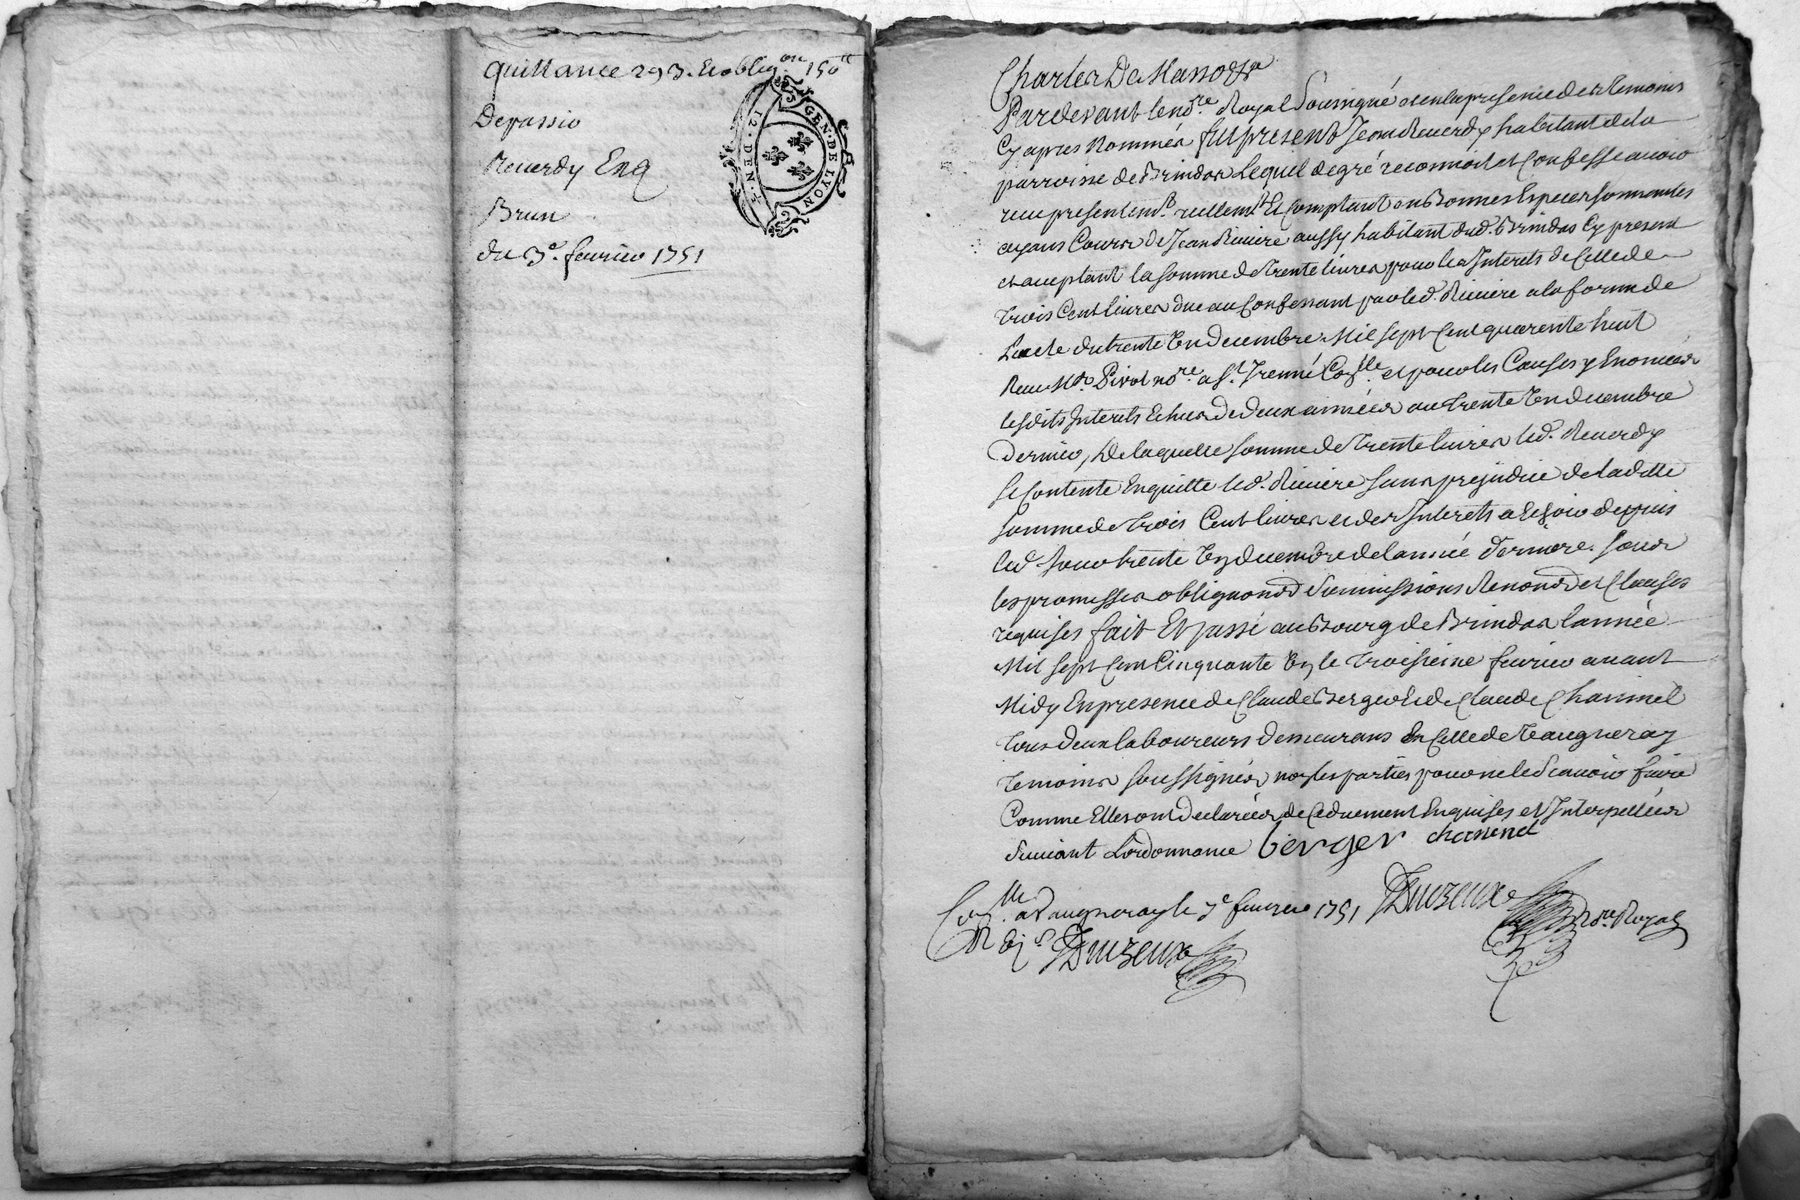 Quittance 293. Et oblig.on 150 tt
Depassio
Reverdy Enq
Brun
du 3e. fevrier 1751
GEN. DE LYON
12. DEN.
Charles De Masso &a
Pardevant le no.re Royal Soussigné et en la presence des Temoins
Cy apres Nommés fut present Jean Reverdy habitant de la
parroisse de Brindas Lequel de gré reconnoit et Confesse avoir
receu presentem.t réellem.t Et Comptant en Bonnes Especes sonnantes
ayans Cours de Jean Riviere aussy habitant dud. Brindas Cy present
et acceptant la somme de trente livres pour les Interets de Celle de
trois Cent livres due au Confessant par led. Riviere a la forme de
L'acte du trente Un decembre Mil sept Cent quarente huit
Receu Me. Pivot no.re a St. Irenné et pour les Causes y Enoncées
lesdits Interets Echus de deux années au trente Un decembre
dernier, De laquelle somme de trente livres led. Reverdy
se Contente Enquitte led. Riviere sans prejudice de laditte
somme de trois Cent livres et des Interets a Echoir depuis
led. jour trente Un decembre de l'année derniere. sous
les promesses obligaons soumissions Renonons et Clauses
requises fait Et passé au Bourg de Brindas l'année
Mil sept Cent Cinquante Un le troisieme fevrier avant
Midy En presence de Claude Berger et de Claude Chaninel
tous deux laboureurs demeurans En Celle de Vaugneray
temoins soussignés non les parties pour ne le Scavoir faire
Comme Elles ont declarées de Ce duement Enquises et Interpellées
suivant L'ordonnance berger chaninel
Con.lle a Vaugneray le 3e fevrier 1751 no.re Royal
R